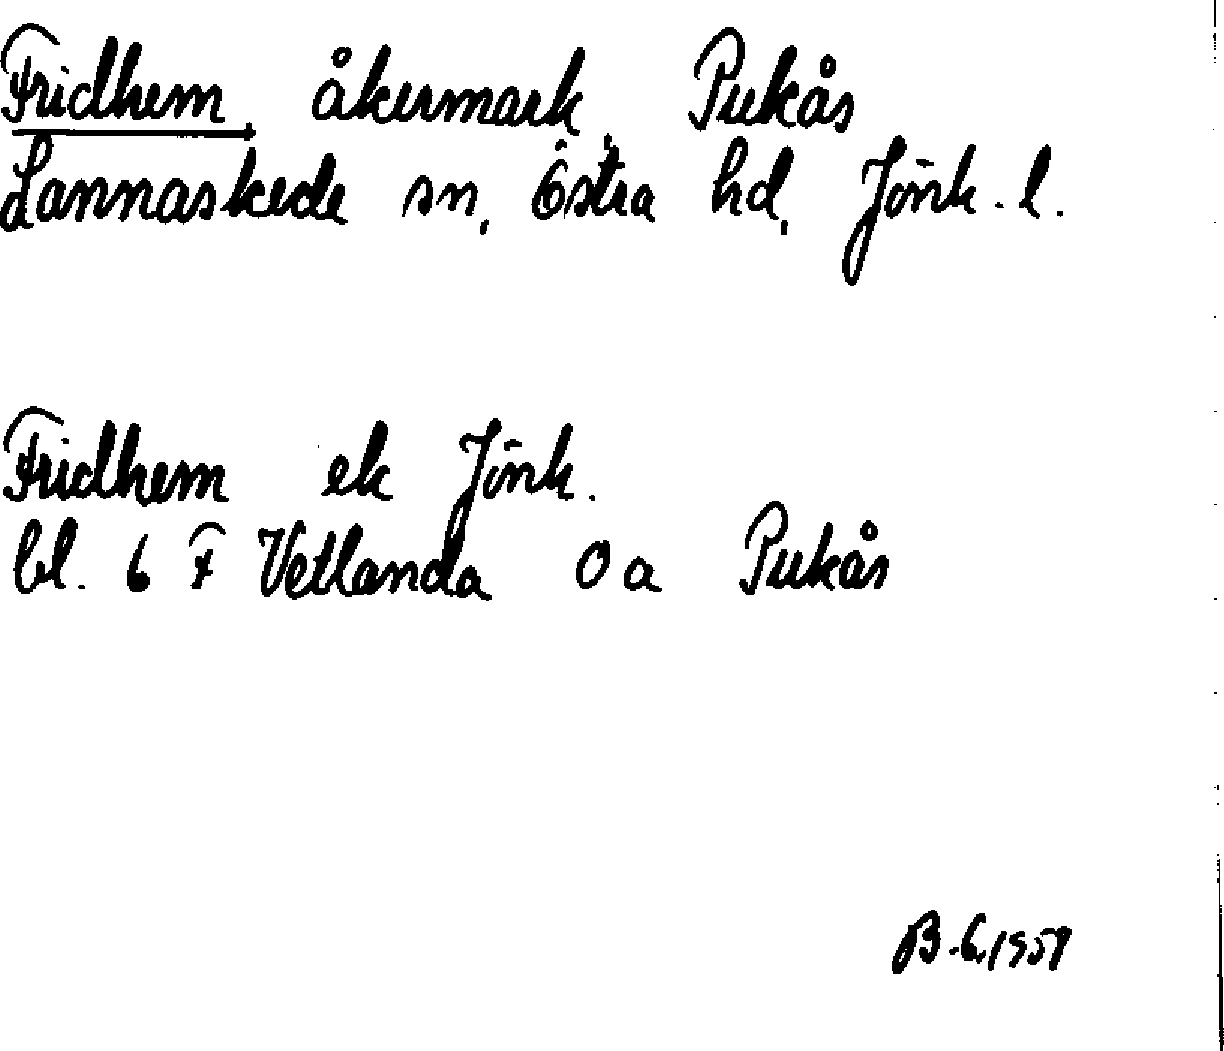 Fridhem, åkermark, Pukås
Lannaskede sn, Östra hd, Jönk. l.
Fridhem ek Jönk.
bl. 6 F Vetlanda O a Pukås